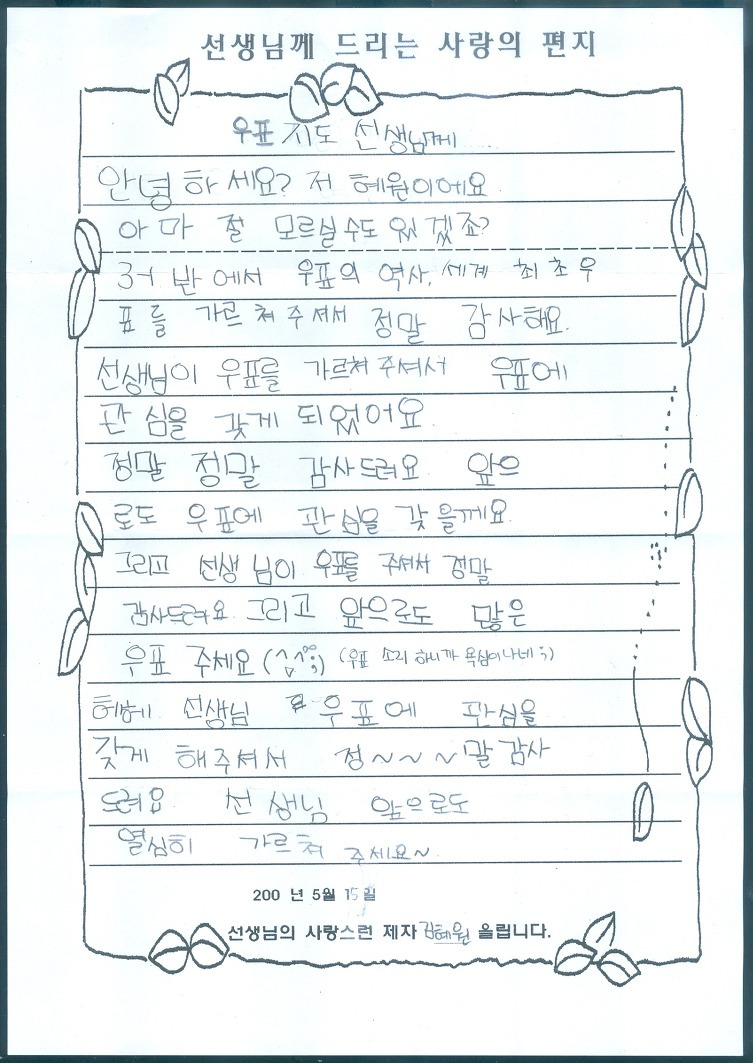 선생님께 드리는 사랑의 편지
우표 지도 선생님께
안녕하세요? 저 혜원이에요
아마 절 모르실수도 있겠죠?
3-1 반에서 우표의 역사, 세계 최초 우
표를 가르쳐주셔서 정말 감사해요.
선생님이 우표를 가르쳐주셔서 우표에
관심을 갖게 되었어요.
정말 정말 감사드려요. 앞으
로도 우표에 관심을 갖을께요.
그리고 선생님이 우표를 주셔서 정말
감사드려요. 그리고 앞으로도 많은
우표 주세요 (^△^;;) (우표 소리 하니까 욕심이나네 ;)
헤헤 선생님 우표에 관심을
갖게 해주셔서 정~~~말 감사
드려요. 선생님 앞으로도
열심히 가르쳐 주세요~
200 년 5월 15일
선생님의 사랑스런 제자 김혜원 올립니다.